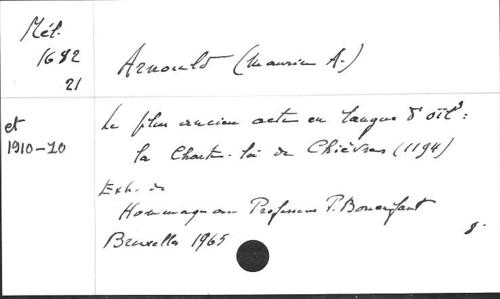 Mél.
1682
21
Arnould (Maurice A.)
et
1910-10
Le plus ancien acte en langue d'oïl :
la Charte-loi de Chièvres (1194)
Extr. de
Hommage au Professeur P. Bonenfant
Bruxelles 1965
8°